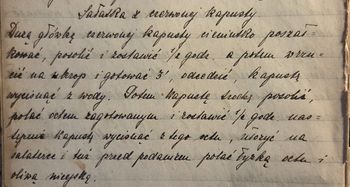 Sałatka z czerwonej kapusty
Dużą główkę czerwonej kapusty cieniutko poszat-
kować, posolić i zostawić 1/2 godz. a potem wrzu-
cić na ukrop i gotować 3', odcedzić, kapustę
wycisnąć z wody. Potem kapustę trochę posolić,
polać octem zagotowanym i zostawić 1/2 godz. nas-
tępnie kapustę wycisnąć z tego octu, ułożyć na
salaterce i tuż przed podaniem polać łyżką octu i
oliwą nicejską.